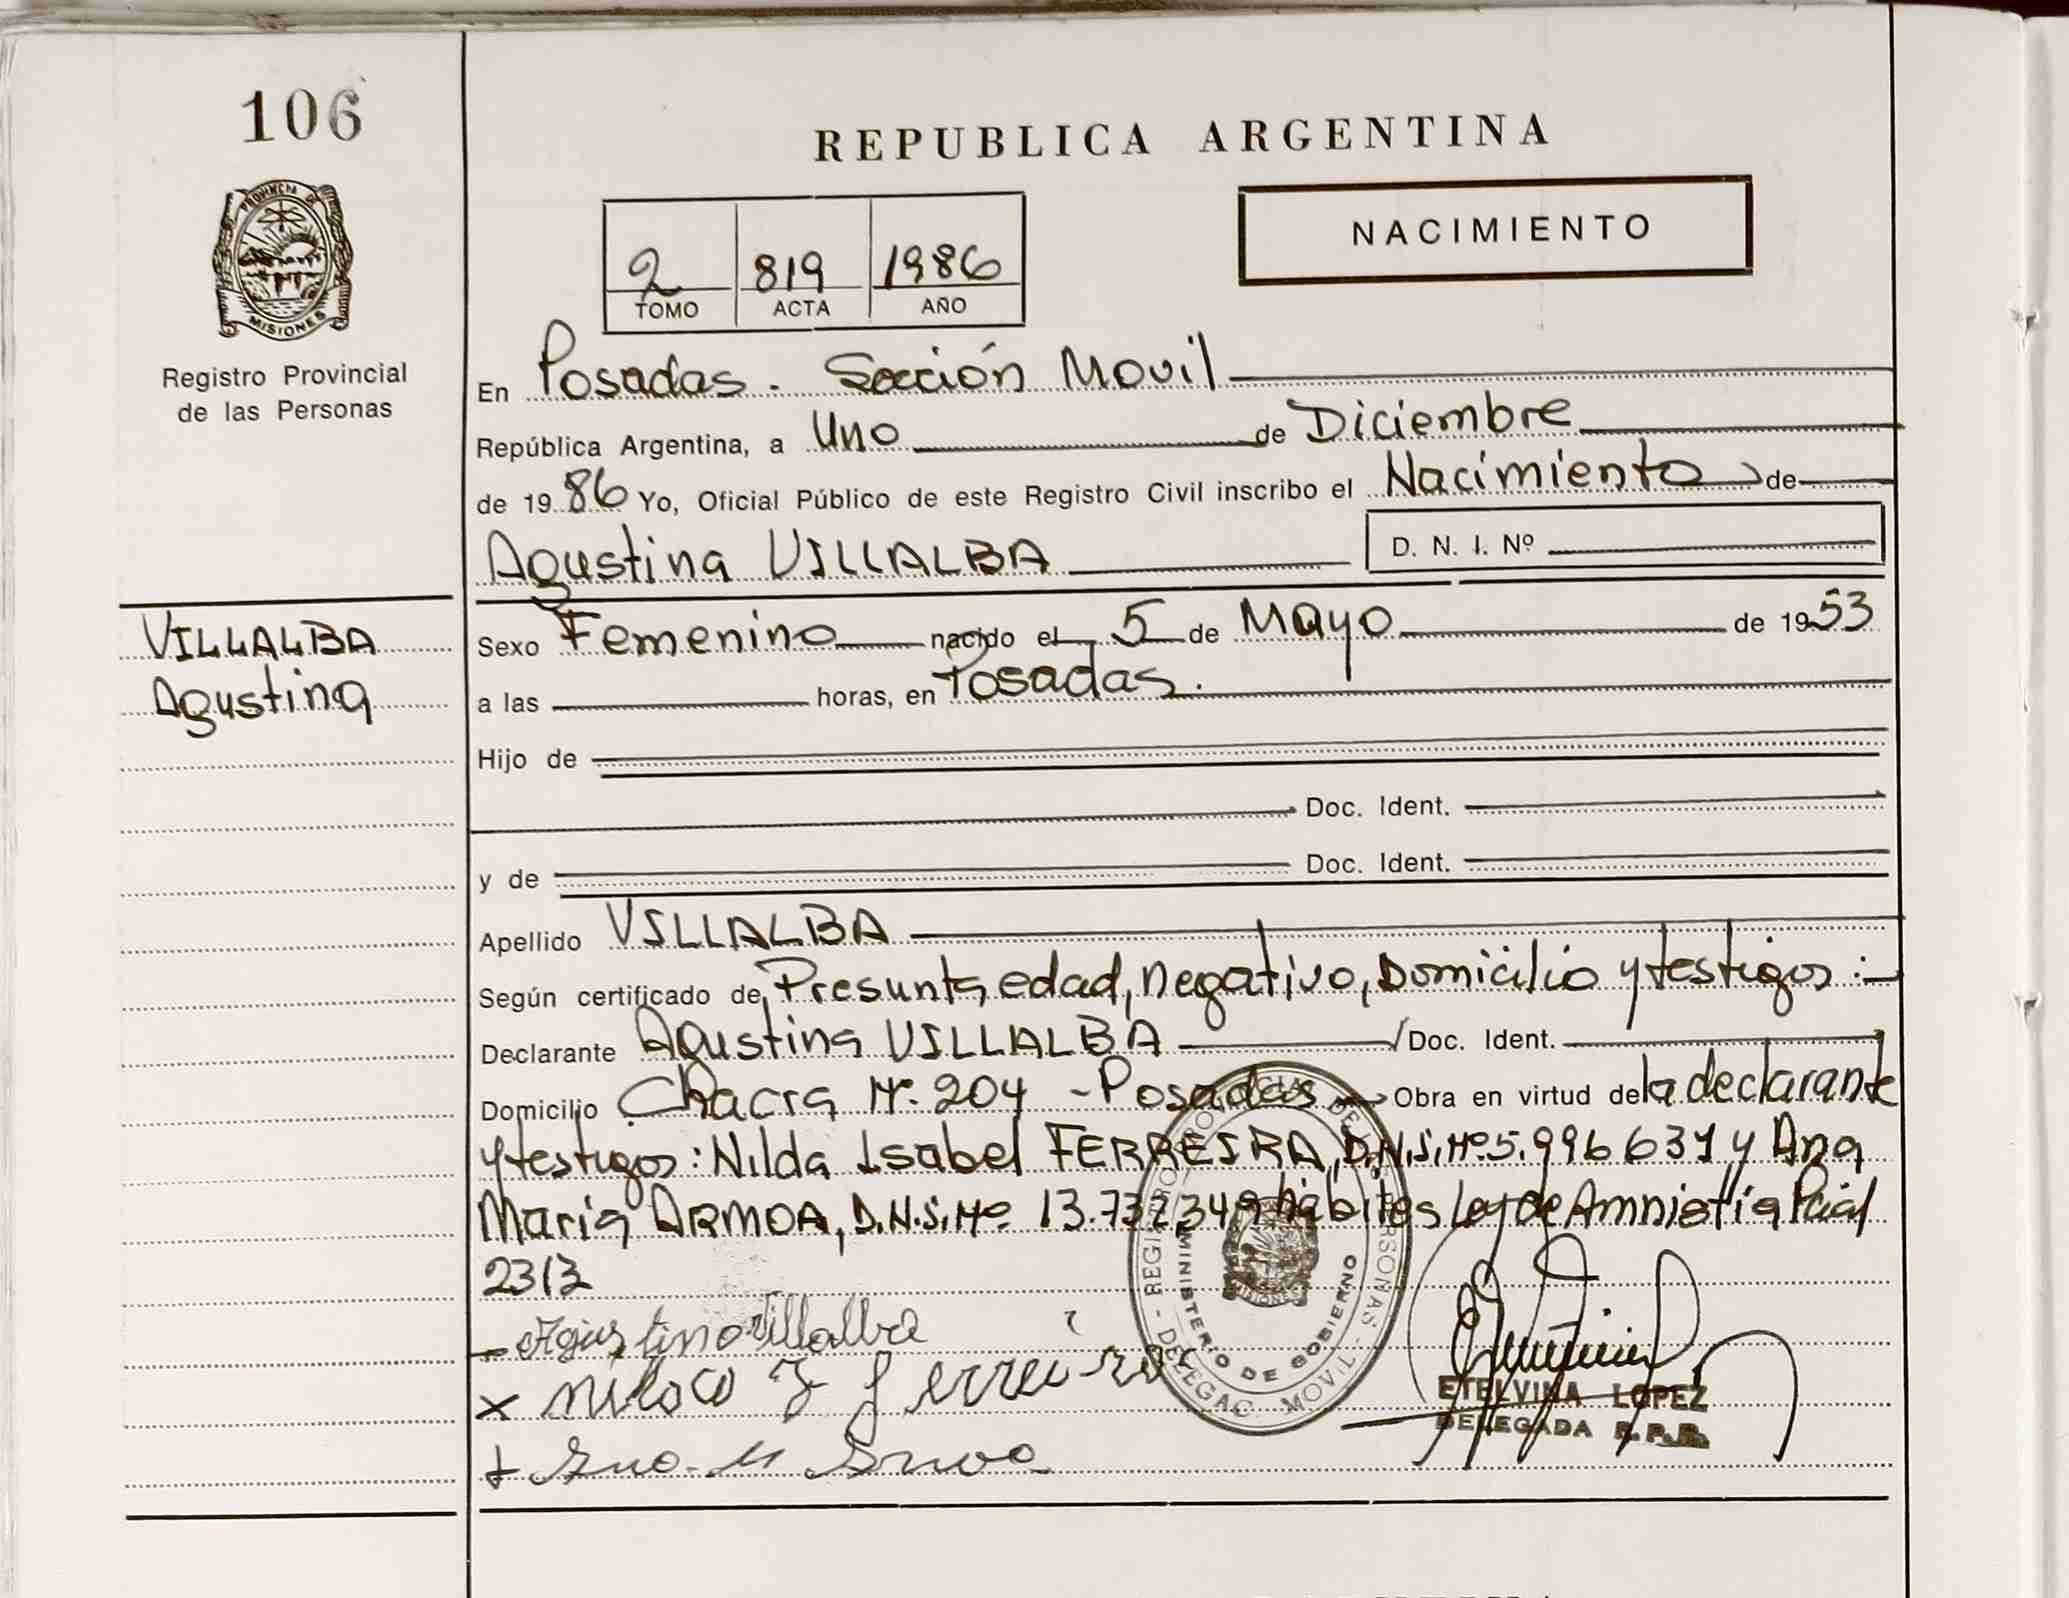 106
PROVINCIA DE
MISIONES
Registro Provincial
de las Personas
VILLALBA
Agustina
REPUBLICA ARGENTINA
2 819 1986
TOMO ACTA AÑO
NACIMIENTO
En Posadas. Sección Movil
República Argentina, a Uno de Diciembre
de 1986 Yo, Oficial Público de este Registro Civil inscribo el Nacimiento de
Agustina VILLALBA D. N. I. Nº
Sexo Femenino nacido el 5 de Mayo de 1953
a las horas, en Posadas.
Hijo de
Doc. Ident.
y de Doc. Ident.
Apellido VILLALBA
Según certificado de Presunta edad, negativo, Domicilio y testigos:-
Declarante Agustina VILLALBA Doc. Ident.
Domicilio Chacra Nº 204 - Posadas Obra en virtud de la declarante
y testigos: Nilda Isabel FERREIRA, D.N.I. Nº 5.996 631 y Ana
Maria ARMOA, D.N.I. Nº 13.732.349 hábiles Ley de Amnistía Pcial
2313
- Agustina Villalba
x Nilda I Ferreira
+ Ana M Armoa
- REGISTRO PROVINCIAL DE LAS PERSONAS -
MINISTERIO DE GOBIERNO
DELEGAC. MOVIL
ETELVINA LOPEZ
DELEGADA R.P.P.